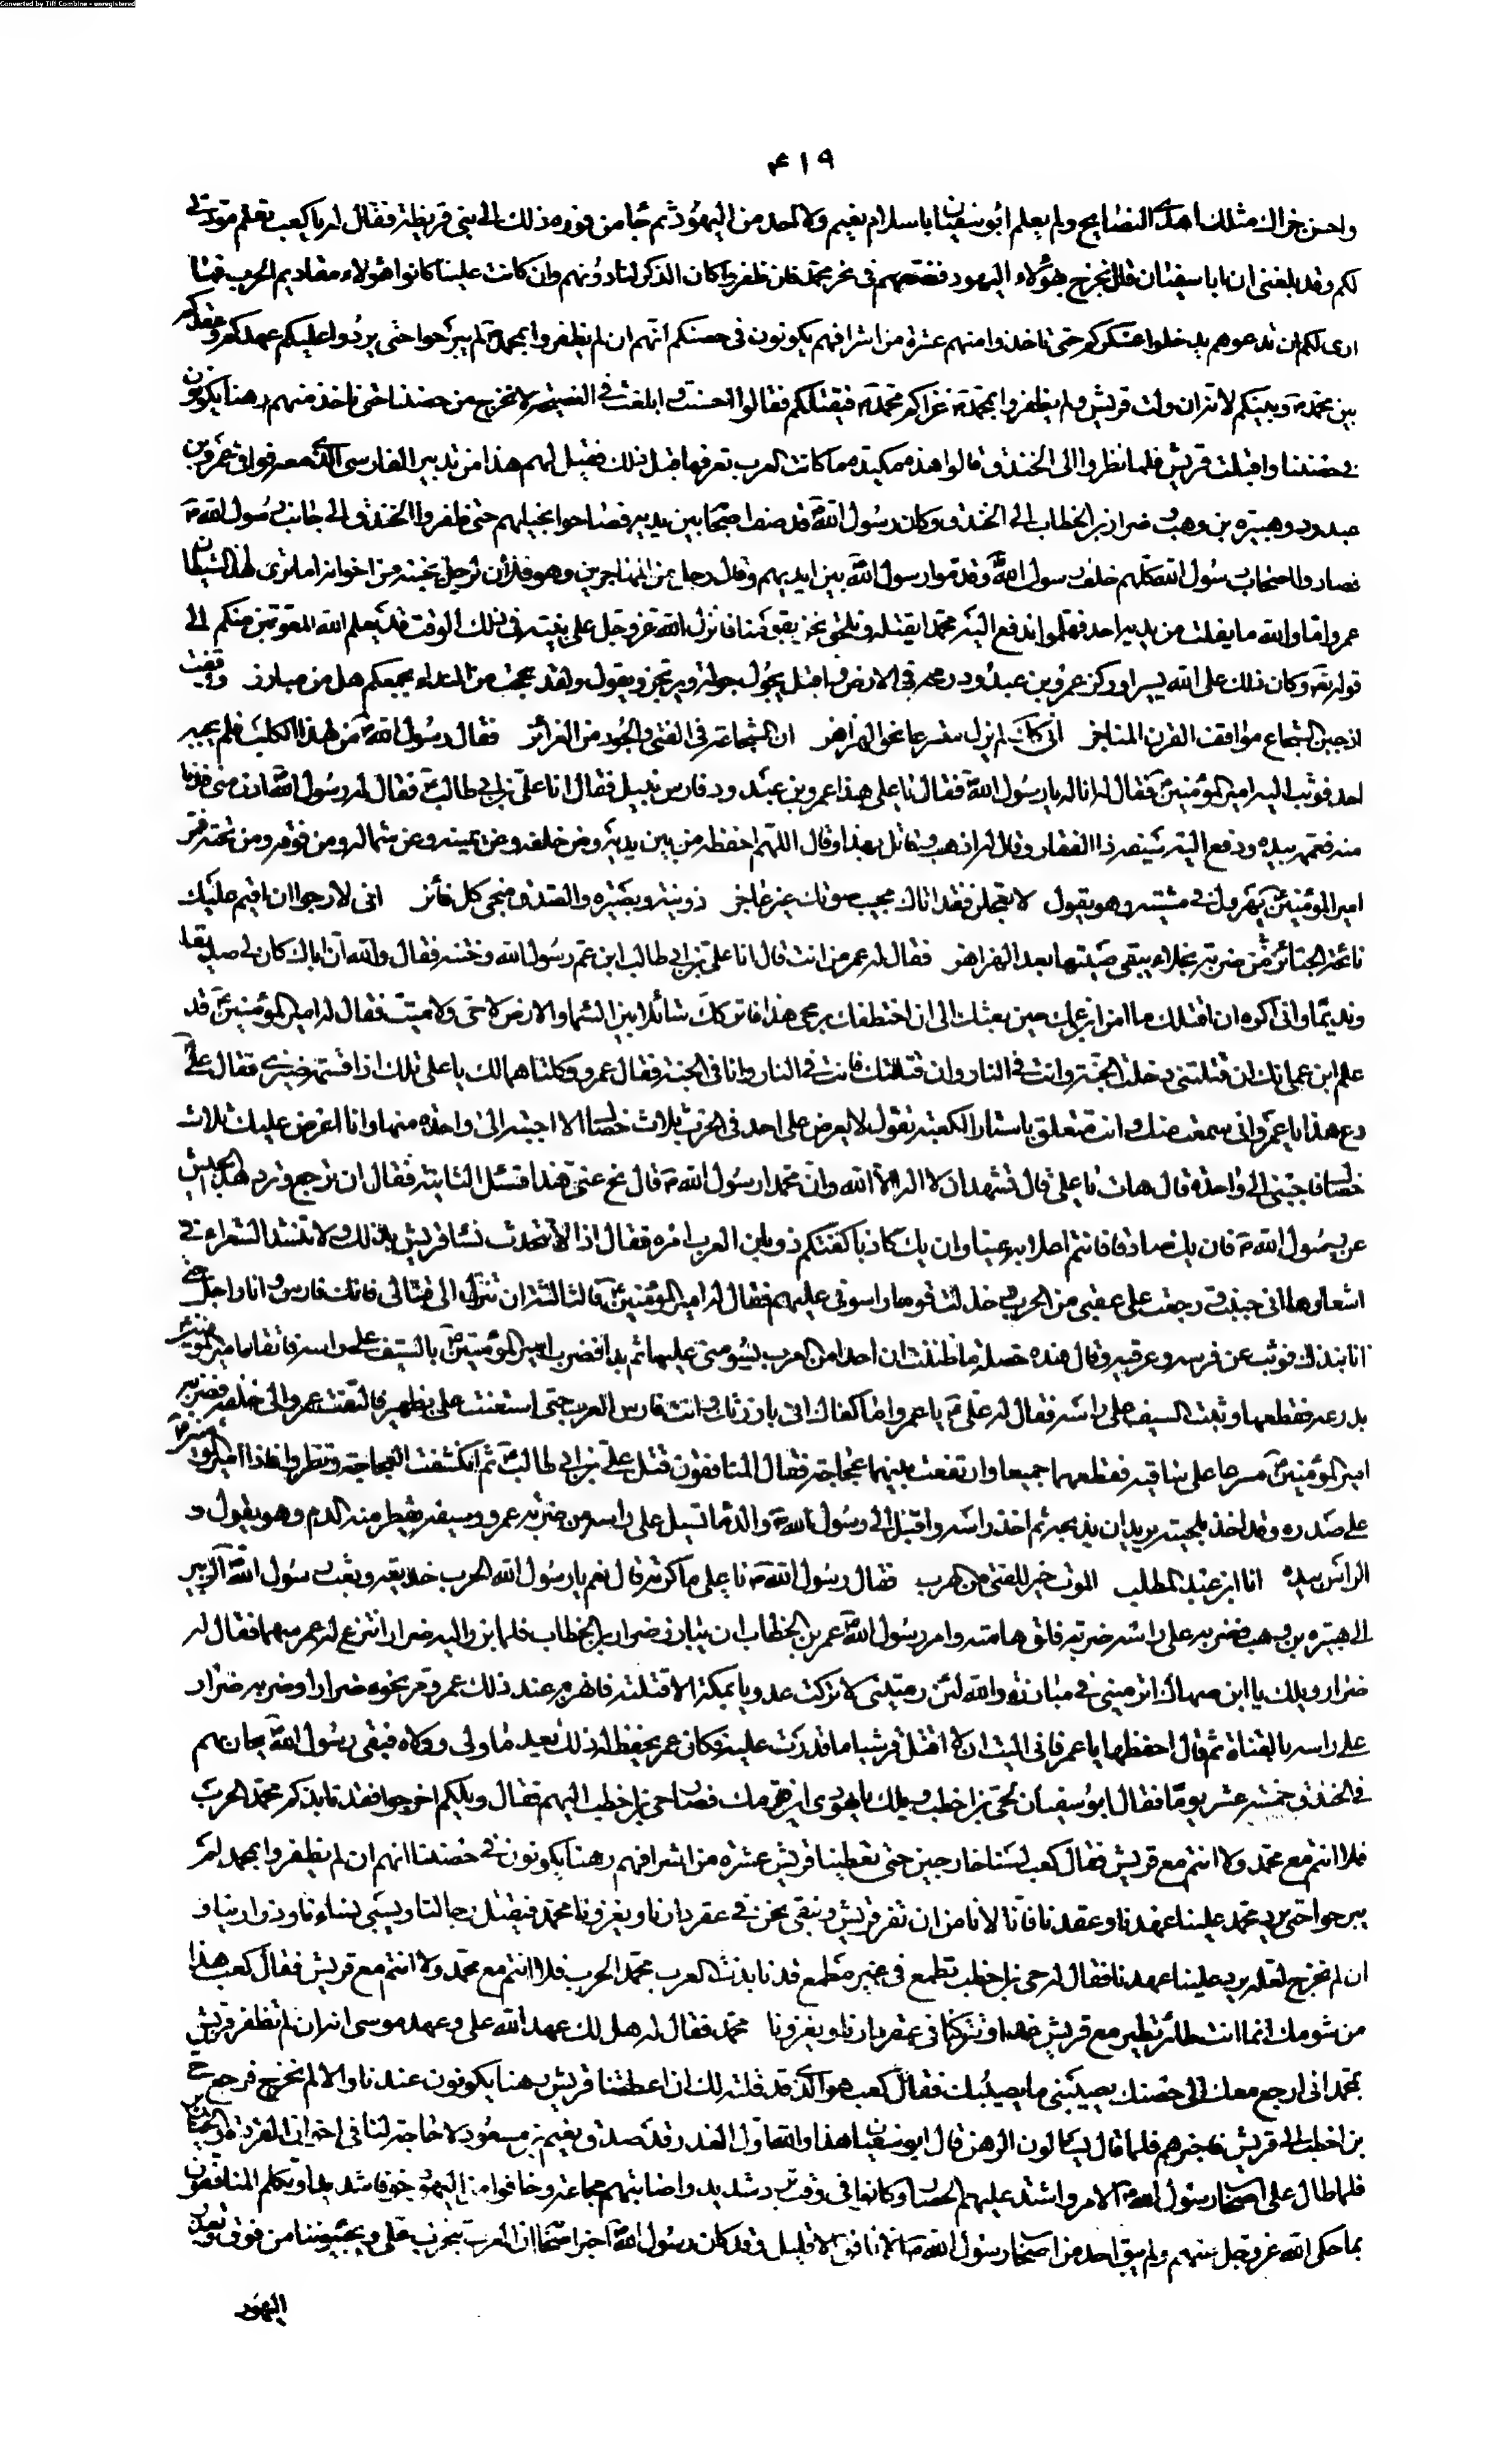 Converted by Tiff Combine - unregistered
۴۱۹
واحسن جزاك مثلك اهدى النصايح ولم يعلم ابو سفيان باسلام نعيم ولا احد من اليهود ثم جا من فوره ذلك الى بنى قريظة فقال له يا كعب تعلم مودتى
لكم وقد بلغنى ان ابا سفيان قال نخرج هؤلاء اليهود فنضعهم فى نحر محمد فان ظفروا كان الذكر لنا دونهم وان كانت علينا كانوا هؤلاء مقاديم الحرب فما
ارى لكم ان تدعوهم يدخلوا عسكركم حتى تاخذوا منهم عشرة من اشرافهم يكونون فى حصنكم انهم ان لم يظفروا بمحمد لم يبرحوا حتى يردوا عليكم عهدكم وعقدكم
بين محمد وبينكم لانه ان ولت قريش ولم يظفروا بمحمد غزاكم محمد فيقتلكم فقالوا احسنت وابلغت فى النصيحة لا نخرج من حصننا حتى ناخذ منهم رهنا يكونون
فى حصننا واقبلت قريش فلما نظروا الى الخندق قالوا هذه مكيدة ما كانت العرب تعرفها قبل ذلك فقيل لهم هذا من تدبير الفارسى الذى معه فوافى عمرو بن
عبدود وهبيرة بن وهب وضرار بن الخطاب الى الخندق وكان رسول الله قد صف اصحابه بين يديه فصاحوا بخيلهم حتى طفروا الخندق الى جانب رسول الله
فصاروا اصحاب رسول الله كلهم خلف رسول الله وقدموا رسول الله بين ايديهم وقال رجل من المهاجرين وهو فلان لرجل بجنبه من اخوانه اما ترى هذا الشيطان
عمرو اما والله ما يفلت من يديه احد فهلموا ندفع اليه محمدا ليقتله ونلحق نحن بقومنا فانزل الله عز وجل على نبيه فى ذلك الوقت قد يعلم الله المعوقين منكم الى
قوله وكان ذلك على الله يسيرا وركز عمرو بن عبدود رمحه فى الارض واقبل يجول جولة ويرتجز ويقول ولقد بححت من النداء بجمعكم هل من مبارز ووقفت
اذ جبن الشجاع مواقف القرن المناجز انى كذلك لم ازل متسرعا نحو الهزاهز ان الشجاعة فى الفتى والجود من الغرائز فقال رسول الله من لهذا الكلب فلم يجبه
احد فوثب اليه امير المؤمنين فقال انا له يا رسول الله فقال يا على هذا عمرو بن عبدود فارس يليل فقال انا على بن ابى طالب فقال له رسول الله ادن منى فدنا
منه فعممه بيده ودفع اليه سيفه ذا الفقار وقال له اذهب وقاتل بهذا وقال اللهم احفظه من بين يديه ومن خلفه وعن يمينه وعن شماله ومن فوقه ومن تحته فمر
امير المؤمنين يهرول فى مشيته وهو يقول لا تعجلن فقد اتاك مجيب صوتك غير عاجز ذو نية وبصيرة والصدق منجى كل فائز انى لارجو ان اقيم عليك
نائحة الجنائز من ضربة نجلاء يبقى صيتها بعد الهزاهز فقال له عمر من انت قال انا على بن ابى طالب ابن عم رسول الله وختنه فقال والله ان اباك كان لى صديقا
ونديما وانى اكره ان اقتلك ما امن ابن عمك حين بعثك الى ان اختطفك برمحى هذا فاتركك شائلا بين السما والارض لا حى ولا ميت فقال له امير المؤمنين قد
علم ابن عمى انك ان قتلتنى دخلت الجنة وانت فى النار وان قتلتك فانت فى النار وانا فى الجنة فقال عمرو وكلتاهما لك يا على تلك اذا قسمة ضيزى فقال على
دع هذا يا عمرو انى سمعت منك وانت متعلق باستار الكعبة تقول لا يعرض على احد فى الحرب ثلاث خصال الا اجبته الى واحدة منها وانا اعرض عليك ثلاث
خصال فاجبنى الى واحدة قال هات يا على قال تشهد ان لا اله الا الله وان محمدا رسول الله قال نح عنى هذا فسئل الثانية فقال ان ترجع وترد هذا الجيش
عن رسول الله فان يك صادقا فانتم اعلا به عينا وان يك كاذبا كفتكم ذوبان العرب امره فقال اذا لا تتحدث نسا قريش بذلك ولا تنشد الشعراء فى
اشعارها انى جبنت ورجعت على عقبى من الحرب وخذلت قوما راسونى عليهم فقال له امير المؤمنين فالثالثة ان تنزل الى قتالى فانك فارس وانا راجل حتى
انابذك فوثب عن فرسه وعرقبه وقال هذه خصلة ما ظننت ان احدا من العرب يسومنى عليها ثم بدا فضرب امير المؤمنين بالسيف على راسه فاتقاه امير المؤمنين
بدرقته فقطعها وثبت السيف على راسه فقال له على يا عمرو اما كفاك انى بارزتك وانت فارس العرب حتى استعنت على بظهير فالتفت عمرو الى خلفه فضربه
امير المؤمنين مسرعا على ساقيه فقطعهما جميعا وارتفعت بينهما عجاجة فقال المنافقون قتل على بن ابى طالب ثم انكشفت العجاجة ونظروا فاذا امير المؤمنين
على صدره وقد اخذ بلحيته يريد ان يذبحه ثم اخذ راسه واقبل الى رسول الله والدما تسيل على راسه من ضربة عمرو وسيفه يقطر منه الدم وهو يقول و
الراس بيده انا ابن عبد المطلب الموت خير للفتى من الهرب فقال رسول الله يا على ماكرته قال نعم يا رسول الله الحرب خديعة وبعث رسول الله الزبير
الى هبيرة بن وهب فضربه على راسه ضربة فلق هامته وامر رسول الله عمر بن الخطاب ان يبارز ضرار بن الخطاب فلما برز اليه ضرار انتزع له عمر سهما فقال له
ضرار ويلك يا ابن صهاك اترمينى فى مبارزة والله لئن رميتنى لا تركت عدويا بمكة الا قتلته فانهزم عند ذلك عمر ومر نحوه ضرار وضربه ضرار
على راسه بالقناة ثم قال احفظها يا عمر فانى اليت ان لا اقتل قرشيا ما قدرت عليه فكان عمر يحفظ له ذلك بعد ما ولى وولاه فبقى رسول الله يحاربهم
فى الخندق خمسة عشر يوما فقال ابو سفيان لحى بن اخطب ويلك يا يهودى اين قومك فصار حى بن اخطب اليهم فقال ويلكم اخرجوا فقد نابذكم محمد الحرب
فلا انتم مع محمد ولا انتم مع قريش فقال كعب لسنا خارجين حتى تعطينا قريش عشرة من اشرافهم رهنا يكونون فى حصننا انهم ان لم يظفروا بمحمد لم
يبرحوا حتى يرد محمد علينا عهدنا وعقدنا فانا لا نامن ان تفر قريش ونبقى نحن فى عقر دارنا ويغزونا محمد فيقتل رجالنا ويسبى نساءنا وذرارينا و
ان لم نخرج لعله يرد علينا عهدنا فقال له حى بن اخطب تطمع فى غير مطمع قد نابذت العرب محمد الحرب فلا انتم مع محمد ولا انتم مع قريش فقال كعب هذا
من شومك انما انت طائر تطير مع قريش غدا وتتركنا فى عقر دارنا ويغزونا محمد فقال له هل لك عهد الله على وعهد موسى انه ان لم تظفر قريش
بمحمد انى ارجع معك الى حصنك يصيبنى ما يصيبك فقال كعب هو الذى قد قلته لك ان اعطتنا قريش رهنا يكونون عندنا والا لم نخرج فرجع حى
بن اخطب الى قريش فاخبرهم فلما قال يسالون الرهن قال ابو سفيان هذا والله اول الغدر قد صدق نعيم بن مسعود لا حاجة لنا فى اخوان القردة والخنازير
فلما طال على اصحاب رسول الله الامر واشتد عليهم الحصار وكانوا فى وقت برد شديد واصابتهم مجاعة وخافوا من اليهود خوفا شديدا وتكلم المنافقون
بما حكى الله عز وجل عنهم ولم يبق احد من اصحاب رسول الله الا نافق الا قليل وقد كان رسول الله اخبر اصحابه ان العرب تتحزب على ويجيئوننا من فوق وتغدر
اليهود